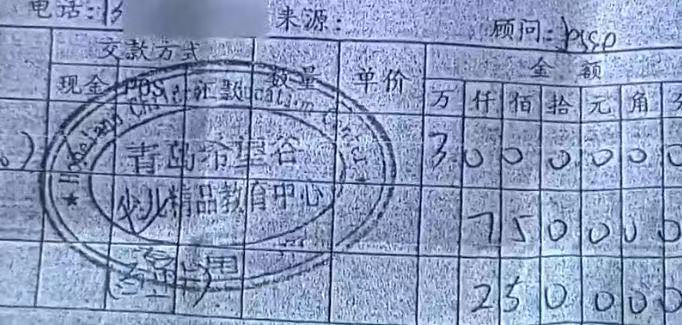 电话:13 来源: 顾问:
交款方式 数量 单价 金额
现金 POS 汇款 万 仟 佰 拾 元 角
青岛希望谷
少儿精品教育中心
3 0 0 0 0 0 0
7 5 0 0 0 0
2 5 0 0 0 0